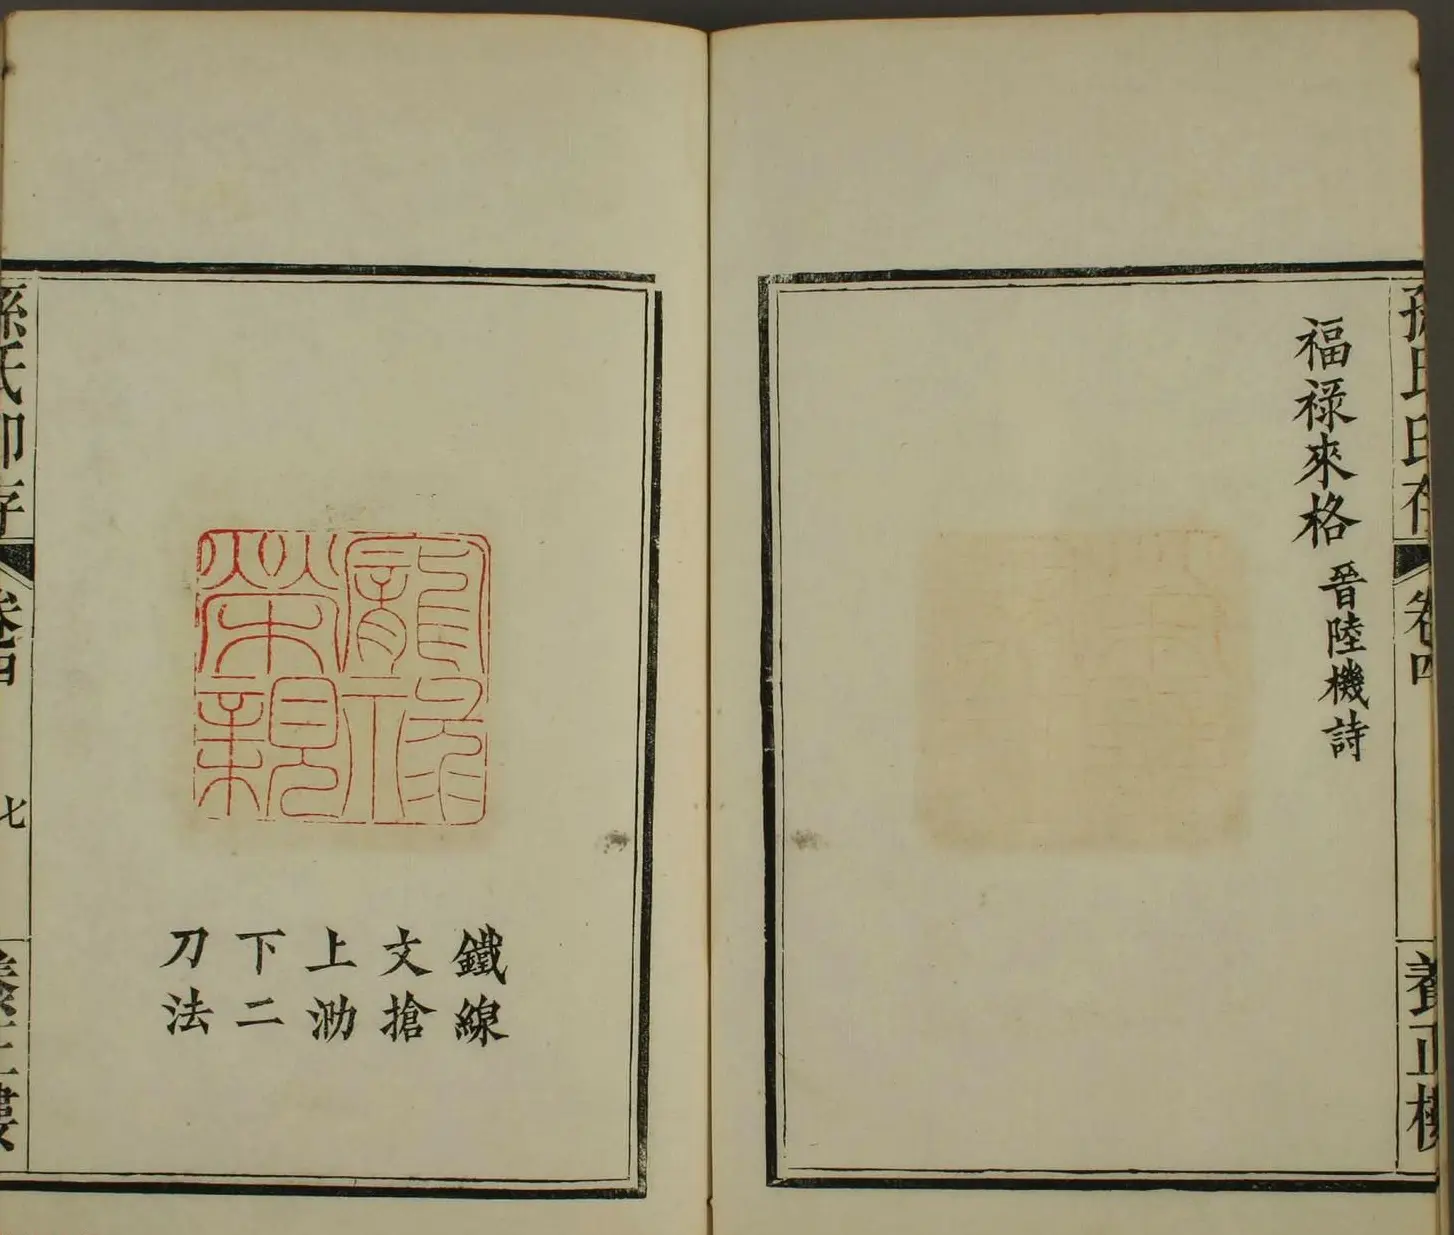 孫氏印存
卷四
養正樓
福祿來格 晉陸機詩
榮親
鐵線
文搶
上泐
下二
刀法
孫氏印存
卷四
七
養正樓